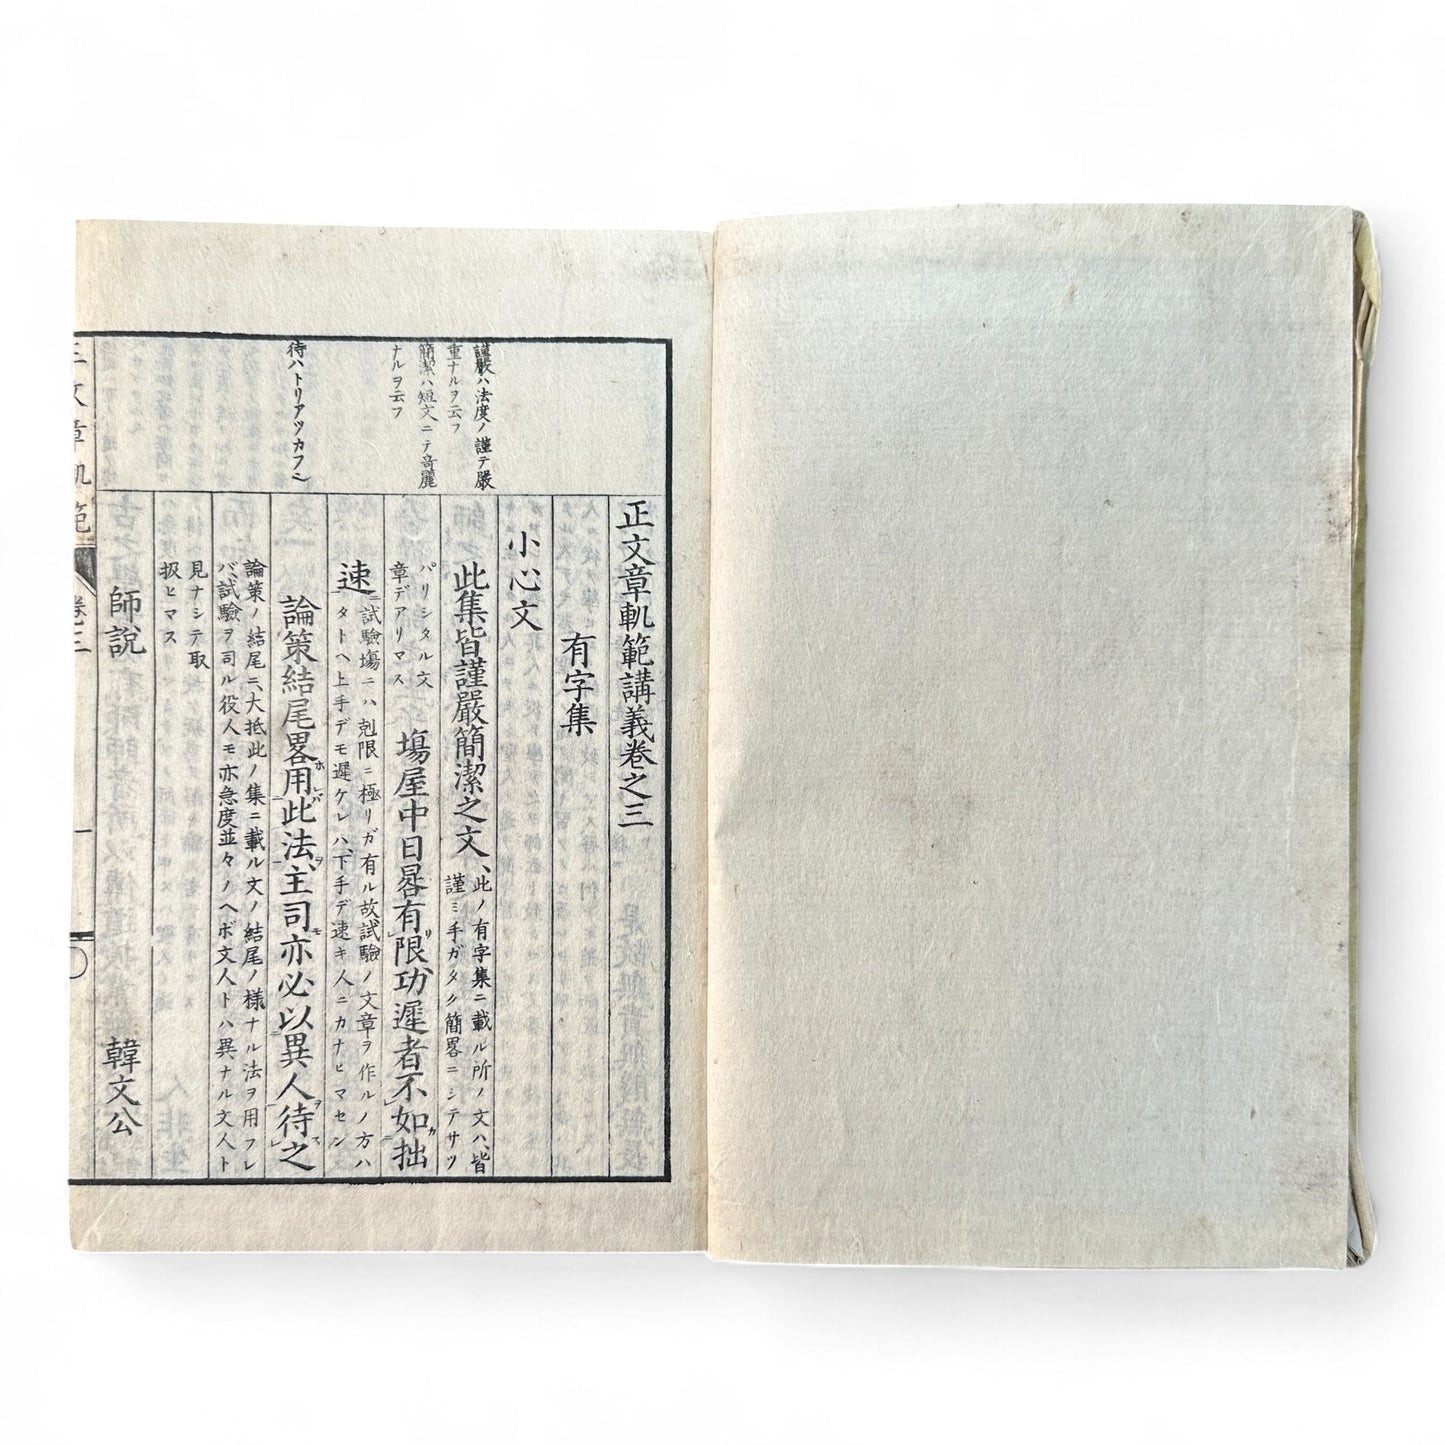 正文章軌範講義卷之三
有字集
小心文
此集皆謹嚴簡潔之文、此ノ有字集ニ載ル所ノ文ハ、皆
謹ミ手ガタク簡畧ニシテサツ
パリシタル文
章デアリマス
塲屋中日晷有限、功遲者不如拙
速、試驗塲ニハ剋限ニ極リガ有ル故試驗ノ文章ヲ作ルノ方ハ
タトヘ上手デモ遲ケレハ、下手デ速キ人ニカナヒマセン
論策結尾畧用此法、主司亦必以異人待之
論策ノ結尾ニ、大抵此ノ集ニ載ル文ノ結尾ノ様ナル法ヲ用フレ
バ、試驗ヲ司ル役人モ亦急度並々ノヘボ文人トハ異ナル文人ト
見ナシテ取
扱ヒマス
師說　韓文公
謹嚴ハ法度ノ謹テ嚴
重ナルヲ云フ
簡潔ハ短文ニテ竒麗
ナルヲ云フ
待ハトリアツカフニ
正文章軌範
卷三
一